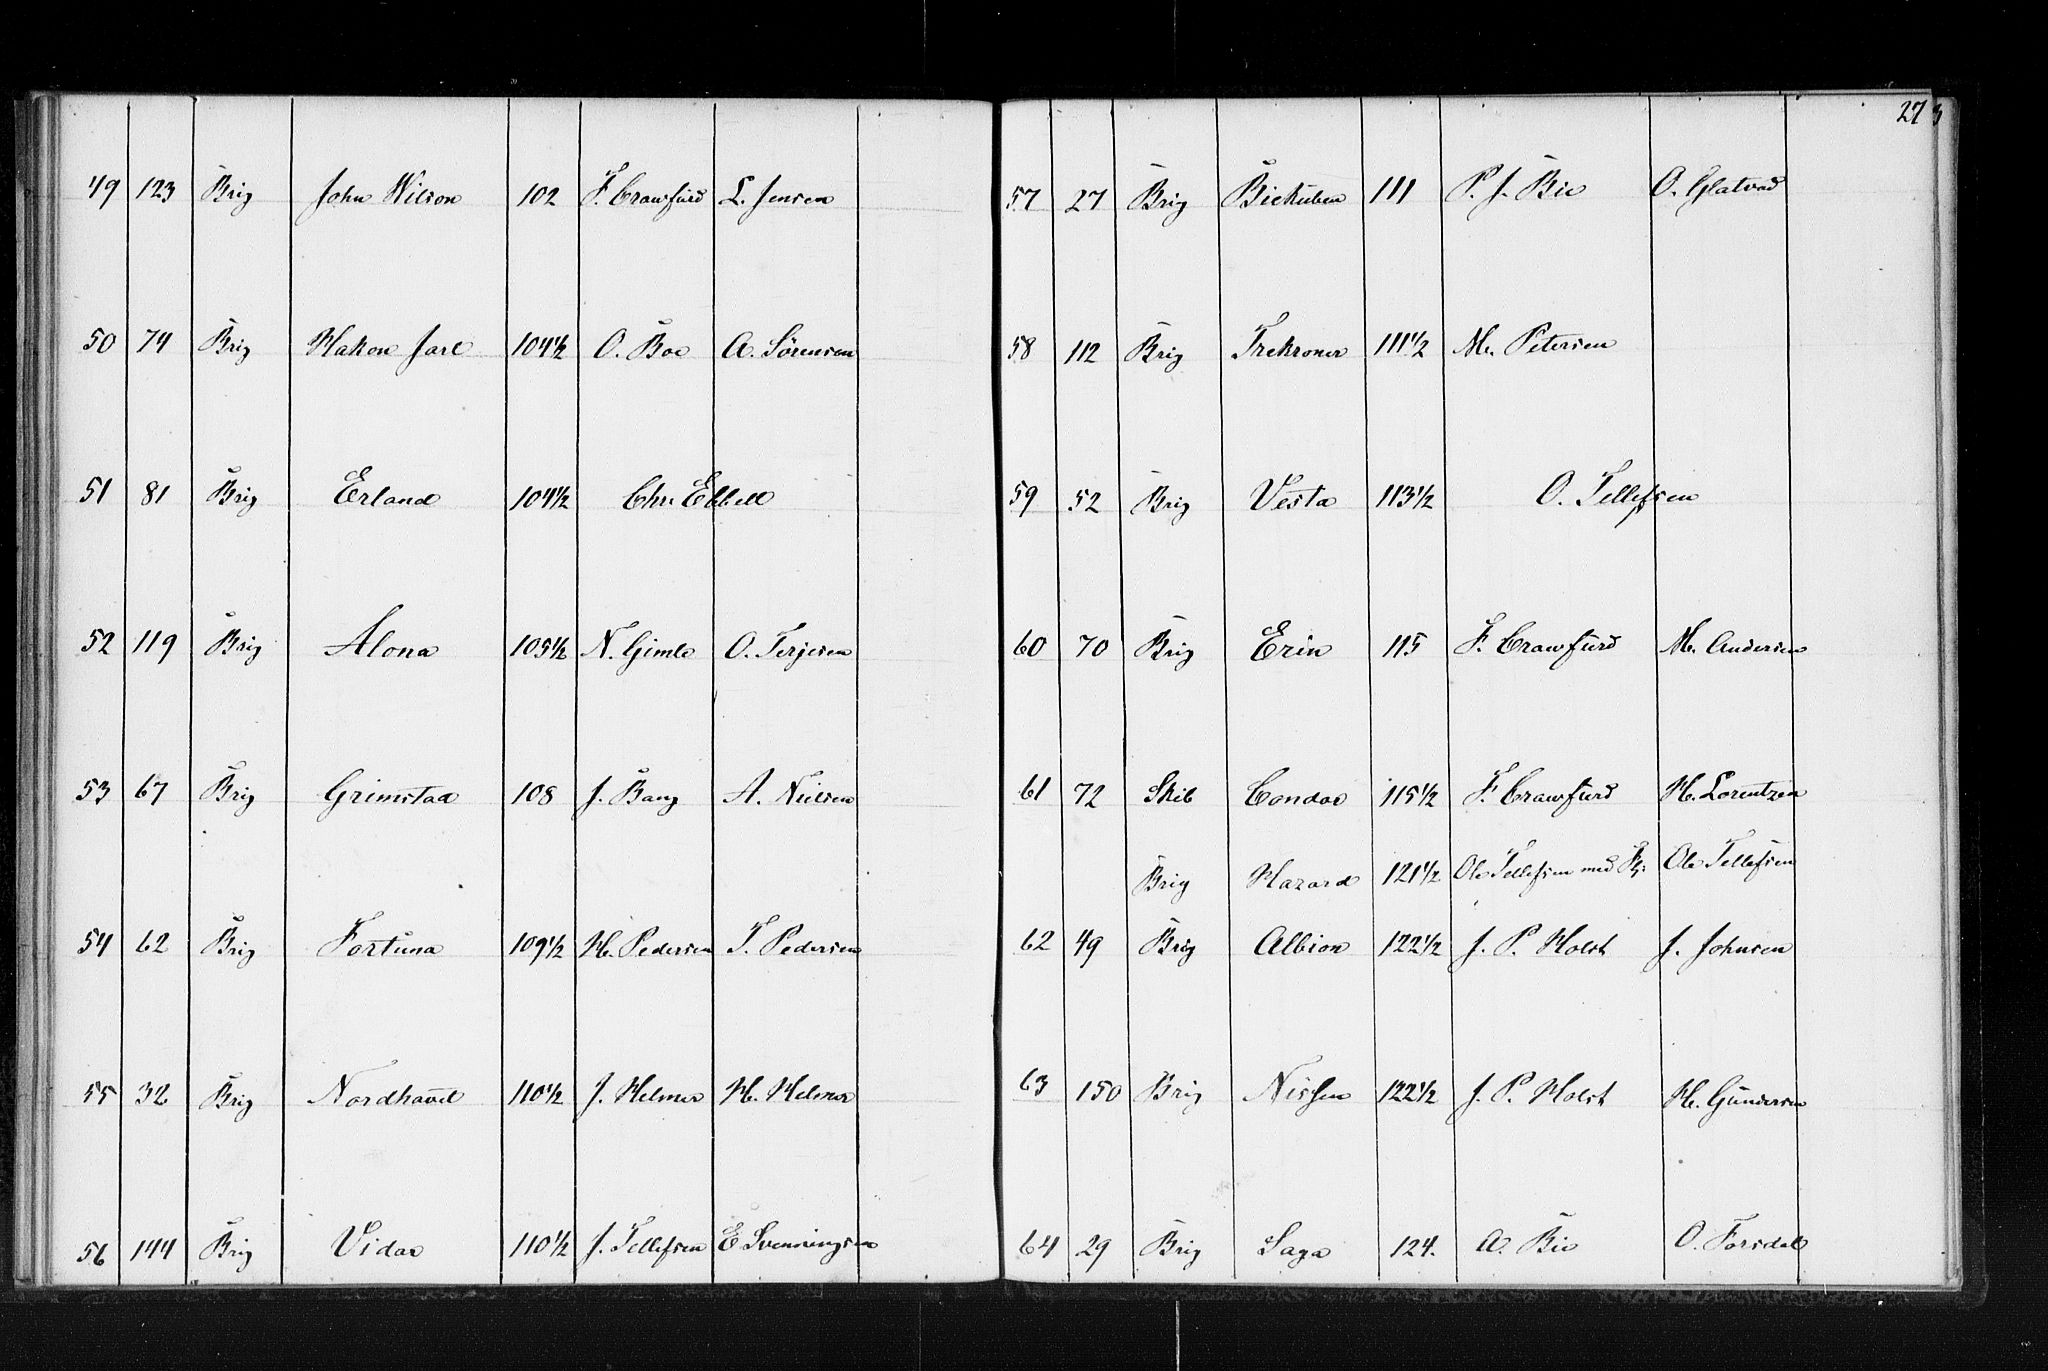 49 123 Brig John Wilson 102 F. Crawfurd L. Jensen
50 74 Brig Hakon Jarl 104 1/2 O. Boe A. Sörensen
51 81 Brig Erland 104 1/2 Chr. Ebbell
52 119 Brig Alona 105 1/2 N. Gimle O. Terjesen
53 67 Brig Grimstad 108 J. Bang A. Nielsen
54 62 Brig Fortuna 109 1/2 H. Pedersen T. Pedersen
55 32 Brig Nordhavet 110 1/2 J. Helmer H. Helmer
56 144 Brig Vidar 110 1/2 J. Tellefsen E Svenningsen
27
57 27 Brig Biekuben 111 P. J. Bie O. Glatved
58 112 Brig Trekroner 111 1/2 M. Petersen
59 52 Brig Vesta 113 1/2 O. Tellefsen
60 70 Brig Erin 115 F. Crawfurd M. Andersen
61 72 Skib Condor 115 1/2 F. Crawfurd H. Lorentzen
Brig Hazard 121 1/2 Ole Tellefsen med Fl. Ole Tellefsen
62 49 Brig Albion 122 1/2 J. P. Holst J. Johnsen
63 150 Brig Nissen 122 1/2 J. P. Holst H. Gundersen
64 29 Brig Saga 124. A. Bie O. Forsdal